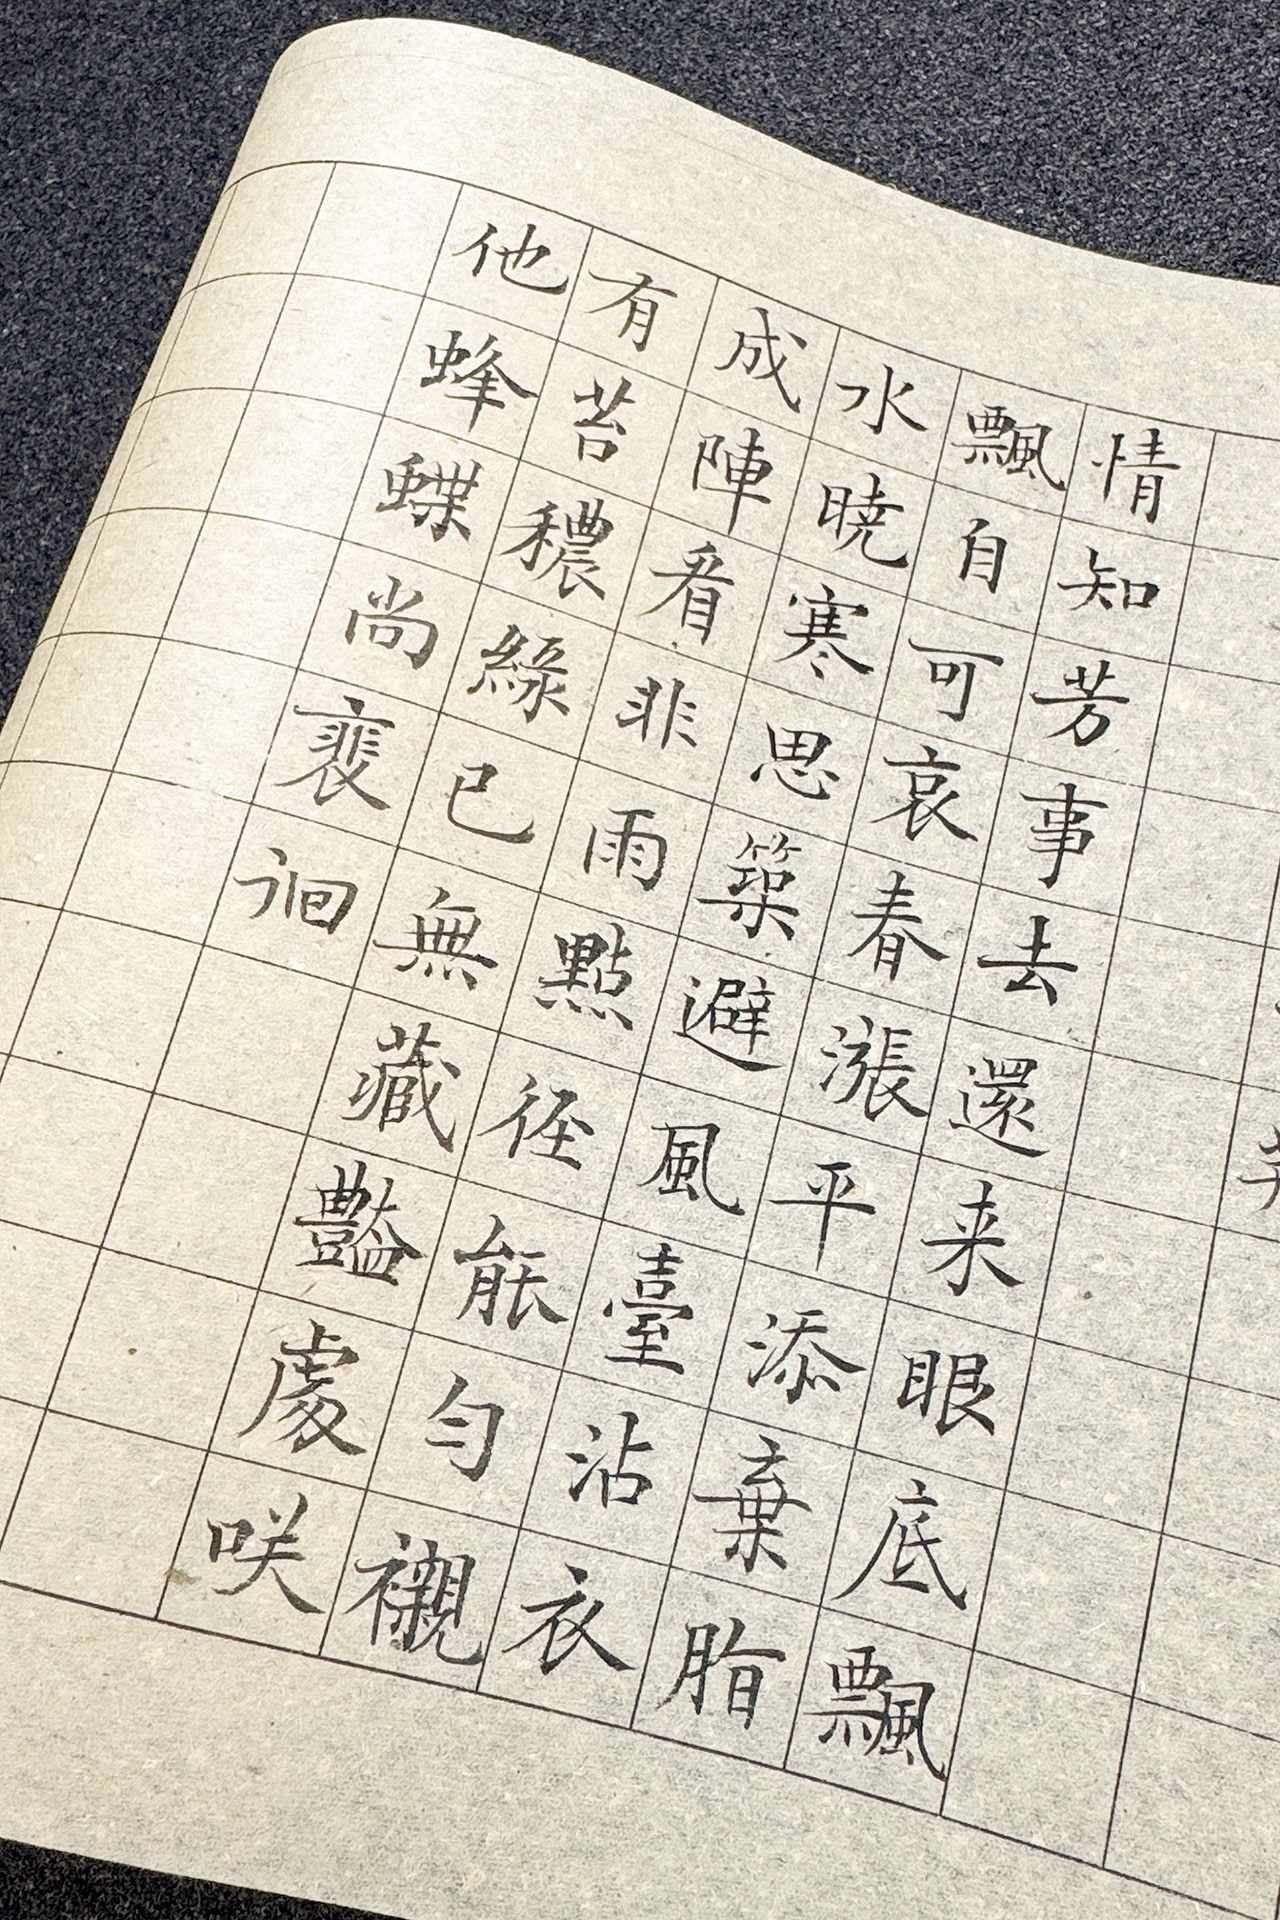 情知芳事去還来眼底飄
飄自可哀春漲平添棄脂
水暁寒思築避風臺沾衣
成陣看非雨點徑能勻襯
有苔穠綠已無藏豔處咲
他蜂蝶尚裵徊